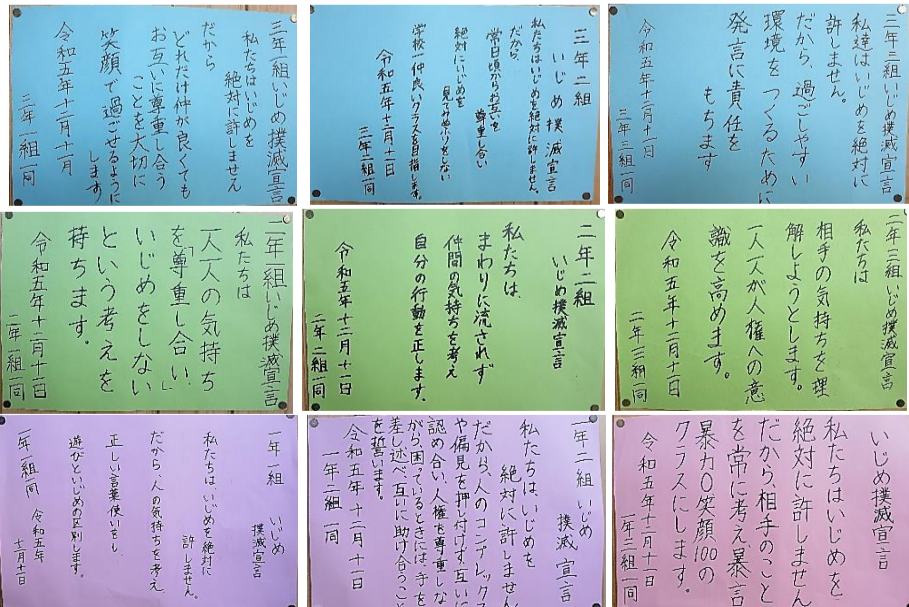 三年一組いじめ撲滅宣言
私たちはいじめを
絶対に許しません
だから
どれだけ仲が良くても
お互いに尊重し合う
ことを大切に
笑顔で過ごせるように
します
令和五年十二月十一日
三年一組一同
三年二組
いじめ撲滅宣言
私たちはいじめを絶対に許しません。
だから、
常日頃からお互いを
尊重し合い
絶対にいじめを
見てみぬふりをしない
学校一仲良いクラスを目指します。
令和五年十二月十一日
三年二組一同
三年三組いじめ撲滅宣言
私達はいじめを絶対に
許しません。
だから、過ごしやすい
環境をつくるために
発言に責任を
もちます
令和五年十二月十一日
三年三組一同
二年一組いじめ撲滅宣言
私たちは
一人一人の気持ち
を「尊重し合い」
いじめをしない
という考えを
持ちます。
令和五年十二月十一日
二年一組一同
二年二組
いじめ撲滅宣言
私たちは、
まわりに流されず
仲間の気持ちを考え
自分の行動を正します。
令和五年十二月十一日
二年二組一同
二年三組いじめ撲滅宣言
私たちは
相手の気持ちを理
解しようとします。
一人一人が人権への意
識を高めます。
令和五年十二月十一日
二年三組一同
一年一組　いじめ
撲滅宣言
私たちは、いじめを絶対に
許しません。
だから、人の気持ちを考え
正しい言葉使いをし、
遊びといじめの区別します。
一年一組一同　令和五年
十二月十一日
一年二組　いじめ
撲滅宣言
私たちは、いじめを
絶対に許しません
だから、人のコンプレックス
や偏見を押し付けず互いに
認め合い、人権を尊重しな
がら、困っているときには手を
差し述べ互いに助け合うこと
を誓います。
令和五年十二月十一日
一年二組一同
いじめ撲滅宣言
私たちはいじめを
絶対に許しません
だから、相手のこと
を常に考え暴言
暴力0笑顔100の
クラスにします。
令和五年十二月十一日
一年三組一同